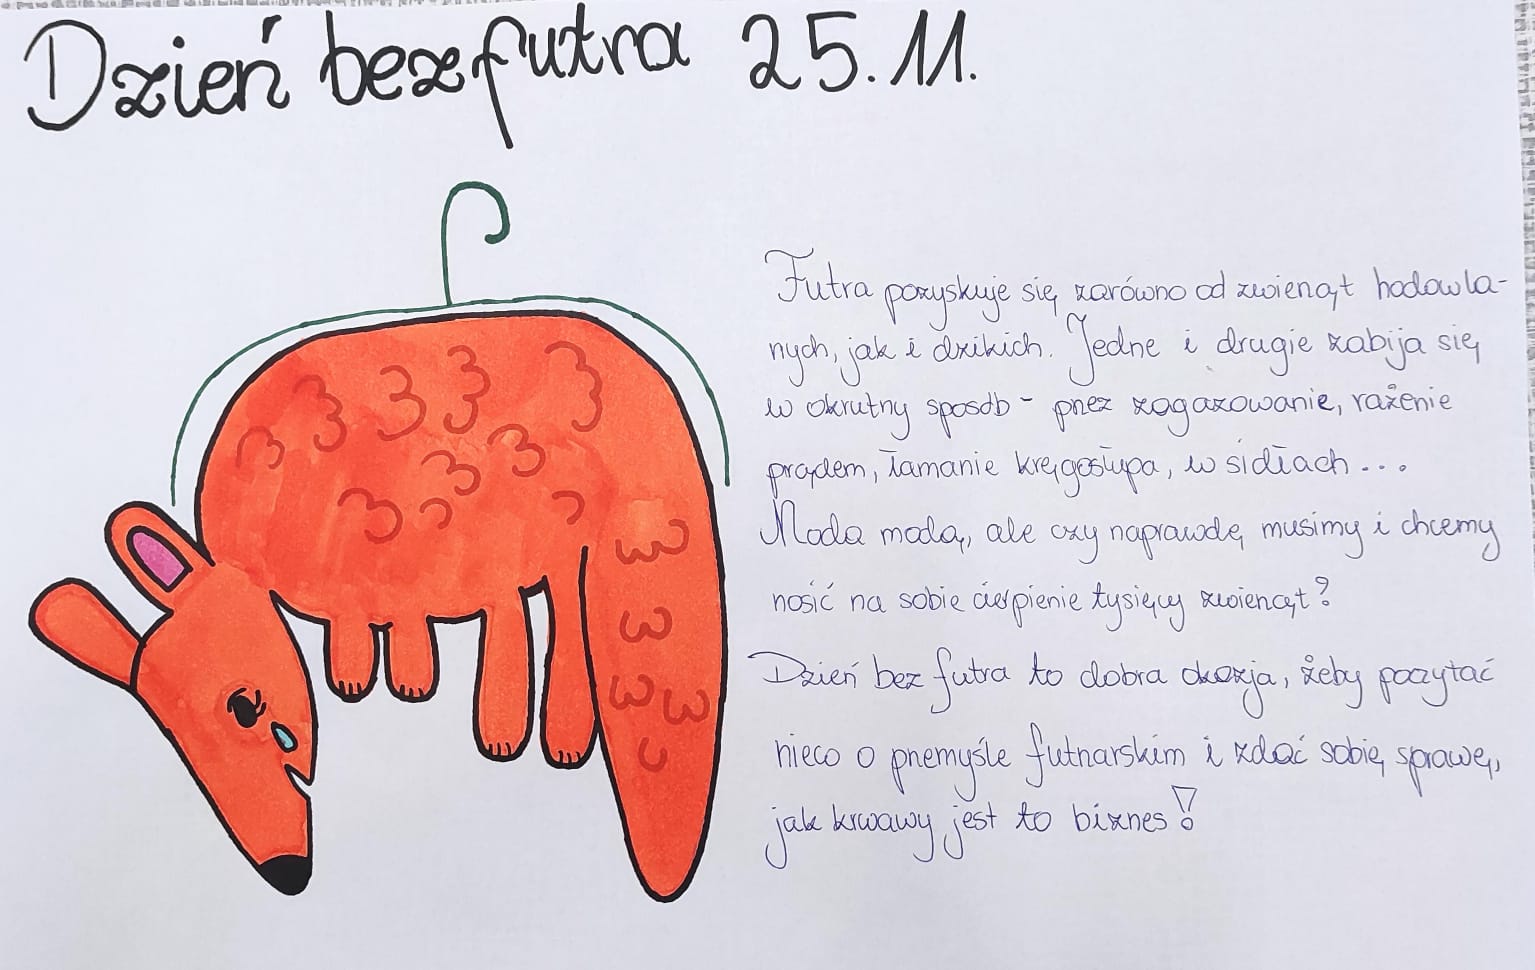 Dzień bez futra 25.11.
Futra pozyskuje się zarówno od zwierząt hodowla-
nych, jak i dzikich. Jedne i drugie zabija się
w okrutny sposób - przez zagazowanie, rażenie
prądem, łamanie kręgosłupa, w sidłach...
Moda modą, ale czy naprawdę musimy i chcemy
nosić na sobie cierpienie tysięcy zwierząt?
Dzień bez futra to dobra okazja, żeby poczytać
nieco o przemyśle futrzarskim i zdać sobię sprawę,
jak krwawy jest to biznes!